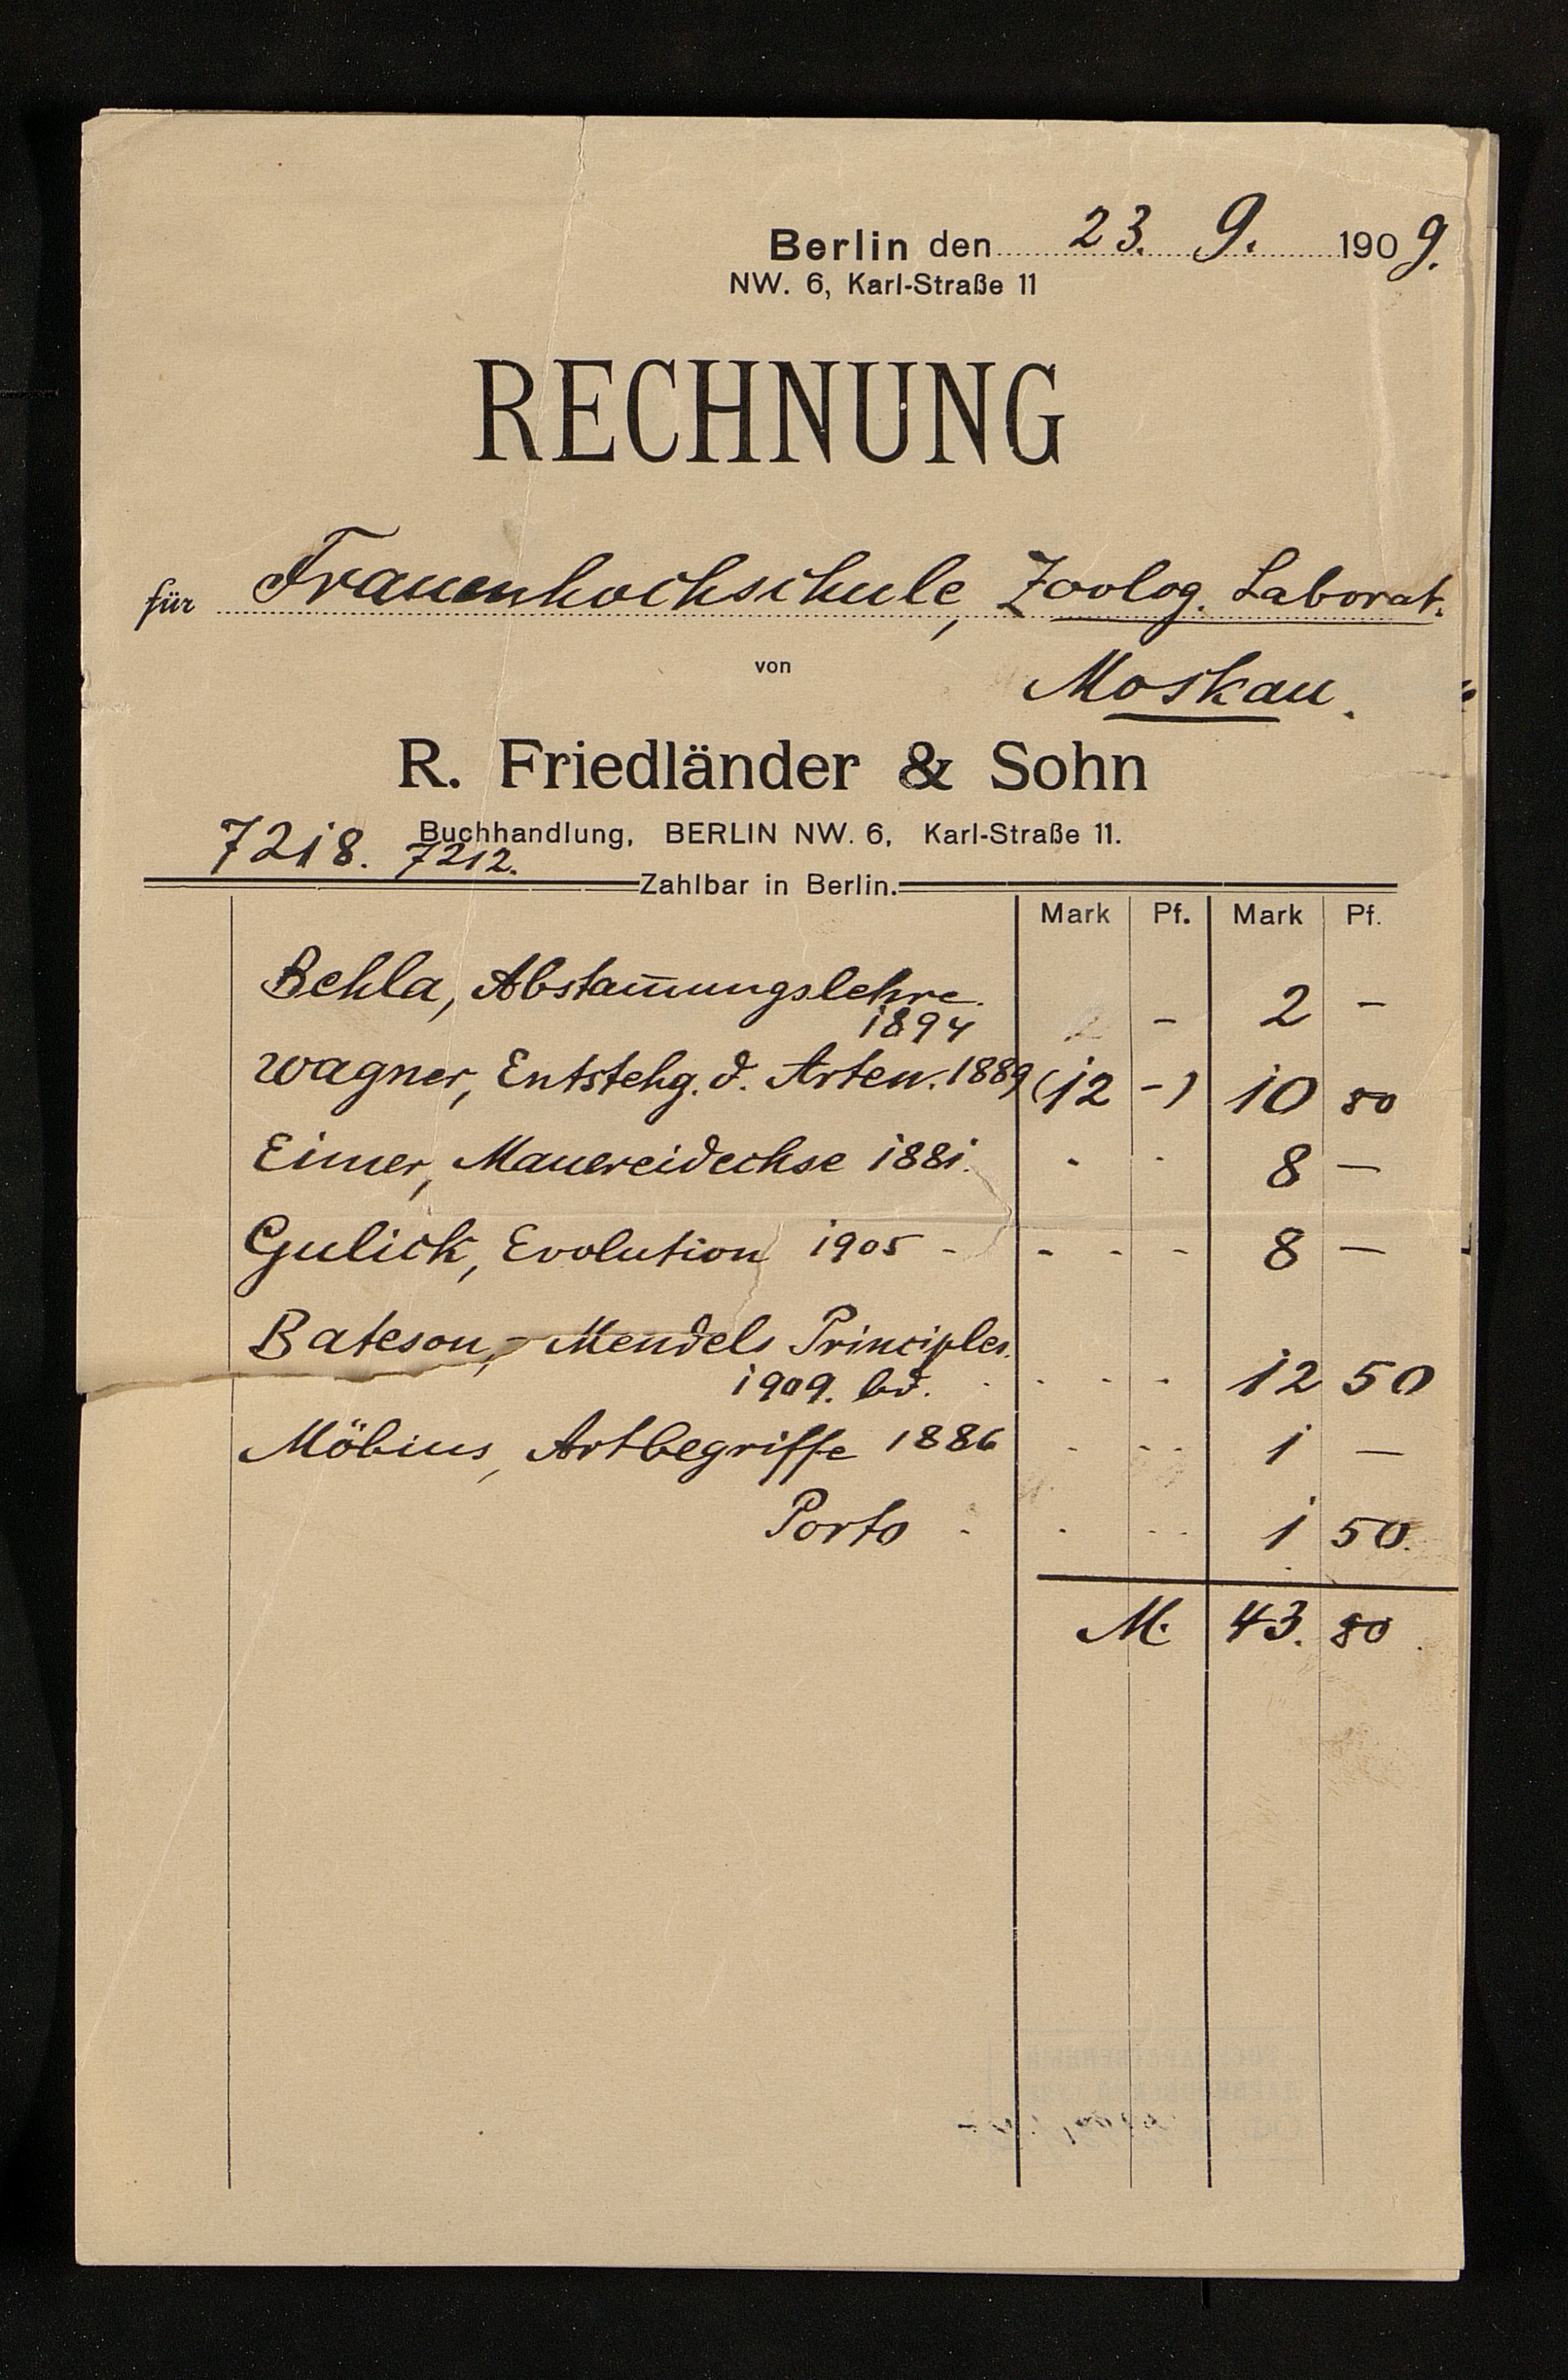 Berlin den 23. 9. 1909.
NW. 6, Karl-Straße 11
RECHNUNG
für Frauenhochschule, Zoolog. Laborat.
von Moskau.
R. Friedländer & Sohn
Buchhandlung, BERLIN NW. 6, Karl-Straße 11.
7218. 7212.
Zahlbar in Berlin.
Mark Pf. Mark Pf.
Behla, Abstam̅ungslehre.
1894 2 - 2 -
Wagner, Entstehg. d. Arten. 1889 (12 -) 10 80
Eimer, Mauereidechse 1881. 8 -
Gulick, Evolution 1905 - 8 -
Bateson, - Mendels Principles.
1909. bd. 12 50
Möbius, Artbegriffe 1886 1 -
Porto 1 50.
M. 43. 80